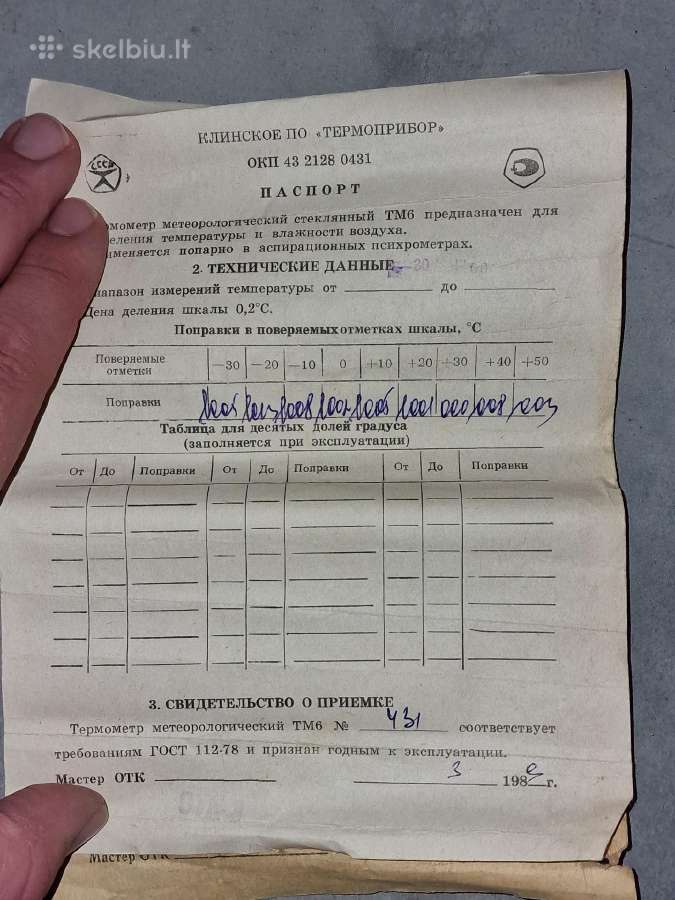 skelbiu.lt
КЛИНСКОЕ ПО «ТЕРМОПРИБОР»
ОКП 43 2128 0431
СССР
ПАСПОРТ
рмометр метеорологический стеклянный ТМ6 предназначен для
еления температуры и влажности воздуха.
именяется попарно в аспирационных психрометрах.
2. ТЕХНИЧЕСКИЕ ДАННЫЕ
апазон измерений температуры от до
Цена деления шкалы 0,2°С.
Поправки в поверяемых отметках шкалы, °С
Поверяемые отметки −30 −20 −10 0 +10 +20 +30 +40 +50
Поправки
Таблица для десятых долей градуса
(заполняется при эксплуатации)
От До Поправки От До Поправки От До Поправки
3. СВИДЕТЕЛЬСТВО О ПРИЕМКЕ
Термометр метеорологический ТМ6 № 431 соответствует
требованиям ГОСТ 112-78 и признан годным к эксплуатации.
Мастер ОТК 3 198 г.
Мастер ОТК